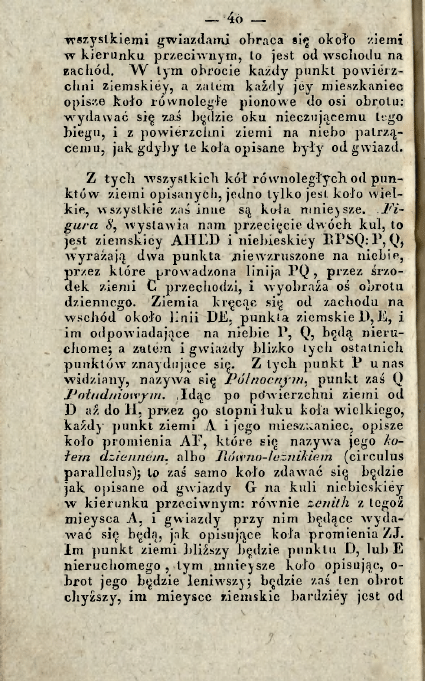 — 40 —
wszystkiemi gwiazdami obraca się około ziemi
w kierunku przeciwnym, to jest od wschodu na
zachód. W tym obrocie każdy punkt powiérz-
chni ziemskiéy, a zatém każdy jéy mieszkaniec
opisze koło równoległe pionowe do osi obrotu:
wydawać się zaś będzie oku nieczującemu tego
biegu, i z powiérzchni ziemi na niebo patrzą-
cemu, jak gdyby te koła opisane były od gwiazd.
Z tych wszystkich kół równoległych od pun-
któw ziemi opisanych, jedno tylko jest koło wiel-
kie, wszystkie zaś inne są koła mnieysze. Fi-
gura 8, wystawia nam przecięcie dwóch kul, to
jest ziemskiéy AHED i niebieskiéy RPSQ: P, Q,
wyrażają dwa punkta niewzruszone na niebie,
przez które prowadzona linija PQ, przez śrzo-
dek ziemi C przechodzi, i wyobraża oś obrotu
dziennego. Ziemia kręcąc się od zachodu na
wschód około linii DE, punkta ziemskie D, E, i
im odpowiadające na niebie P, Q, będą nieru-
chome; a zatém i gwiazdy blizko tych ostatnich
punktów znaydujące się. Z tych punkt P u nas
widziany, nazywa się Północnym, punkt zaś Q
Południowym. Idąc po powiérzchni ziemi od
D aż do H, przez 90 stopni łuku koła wielkiego,
każdy punkt ziemi A i jego mieszkaniec, opisze
koło promienia AF, które się nazywa jego ko-
łem dzienném, albo Równo-leżnikiem (circulus
parallelus); to zaś samo koło zdawać się będzie
jak opisane od gwiazdy G na kuli niebieskiéy
w kierunku przeciwnym: równie zenith z tegoż
mieysca A, i gwiazdy przy nim będące wyda-
wać się będą, jak opisujące koła promienia ZJ.
Im punkt ziemi bliższy będzie punktu D, lub E
nieruchomego, tym mnieysze koło opisując, o-
brot jego będzie leniwszy; będzie zaś ten obrot
chyższy, im mieysce ziemskie bardziéy jest od